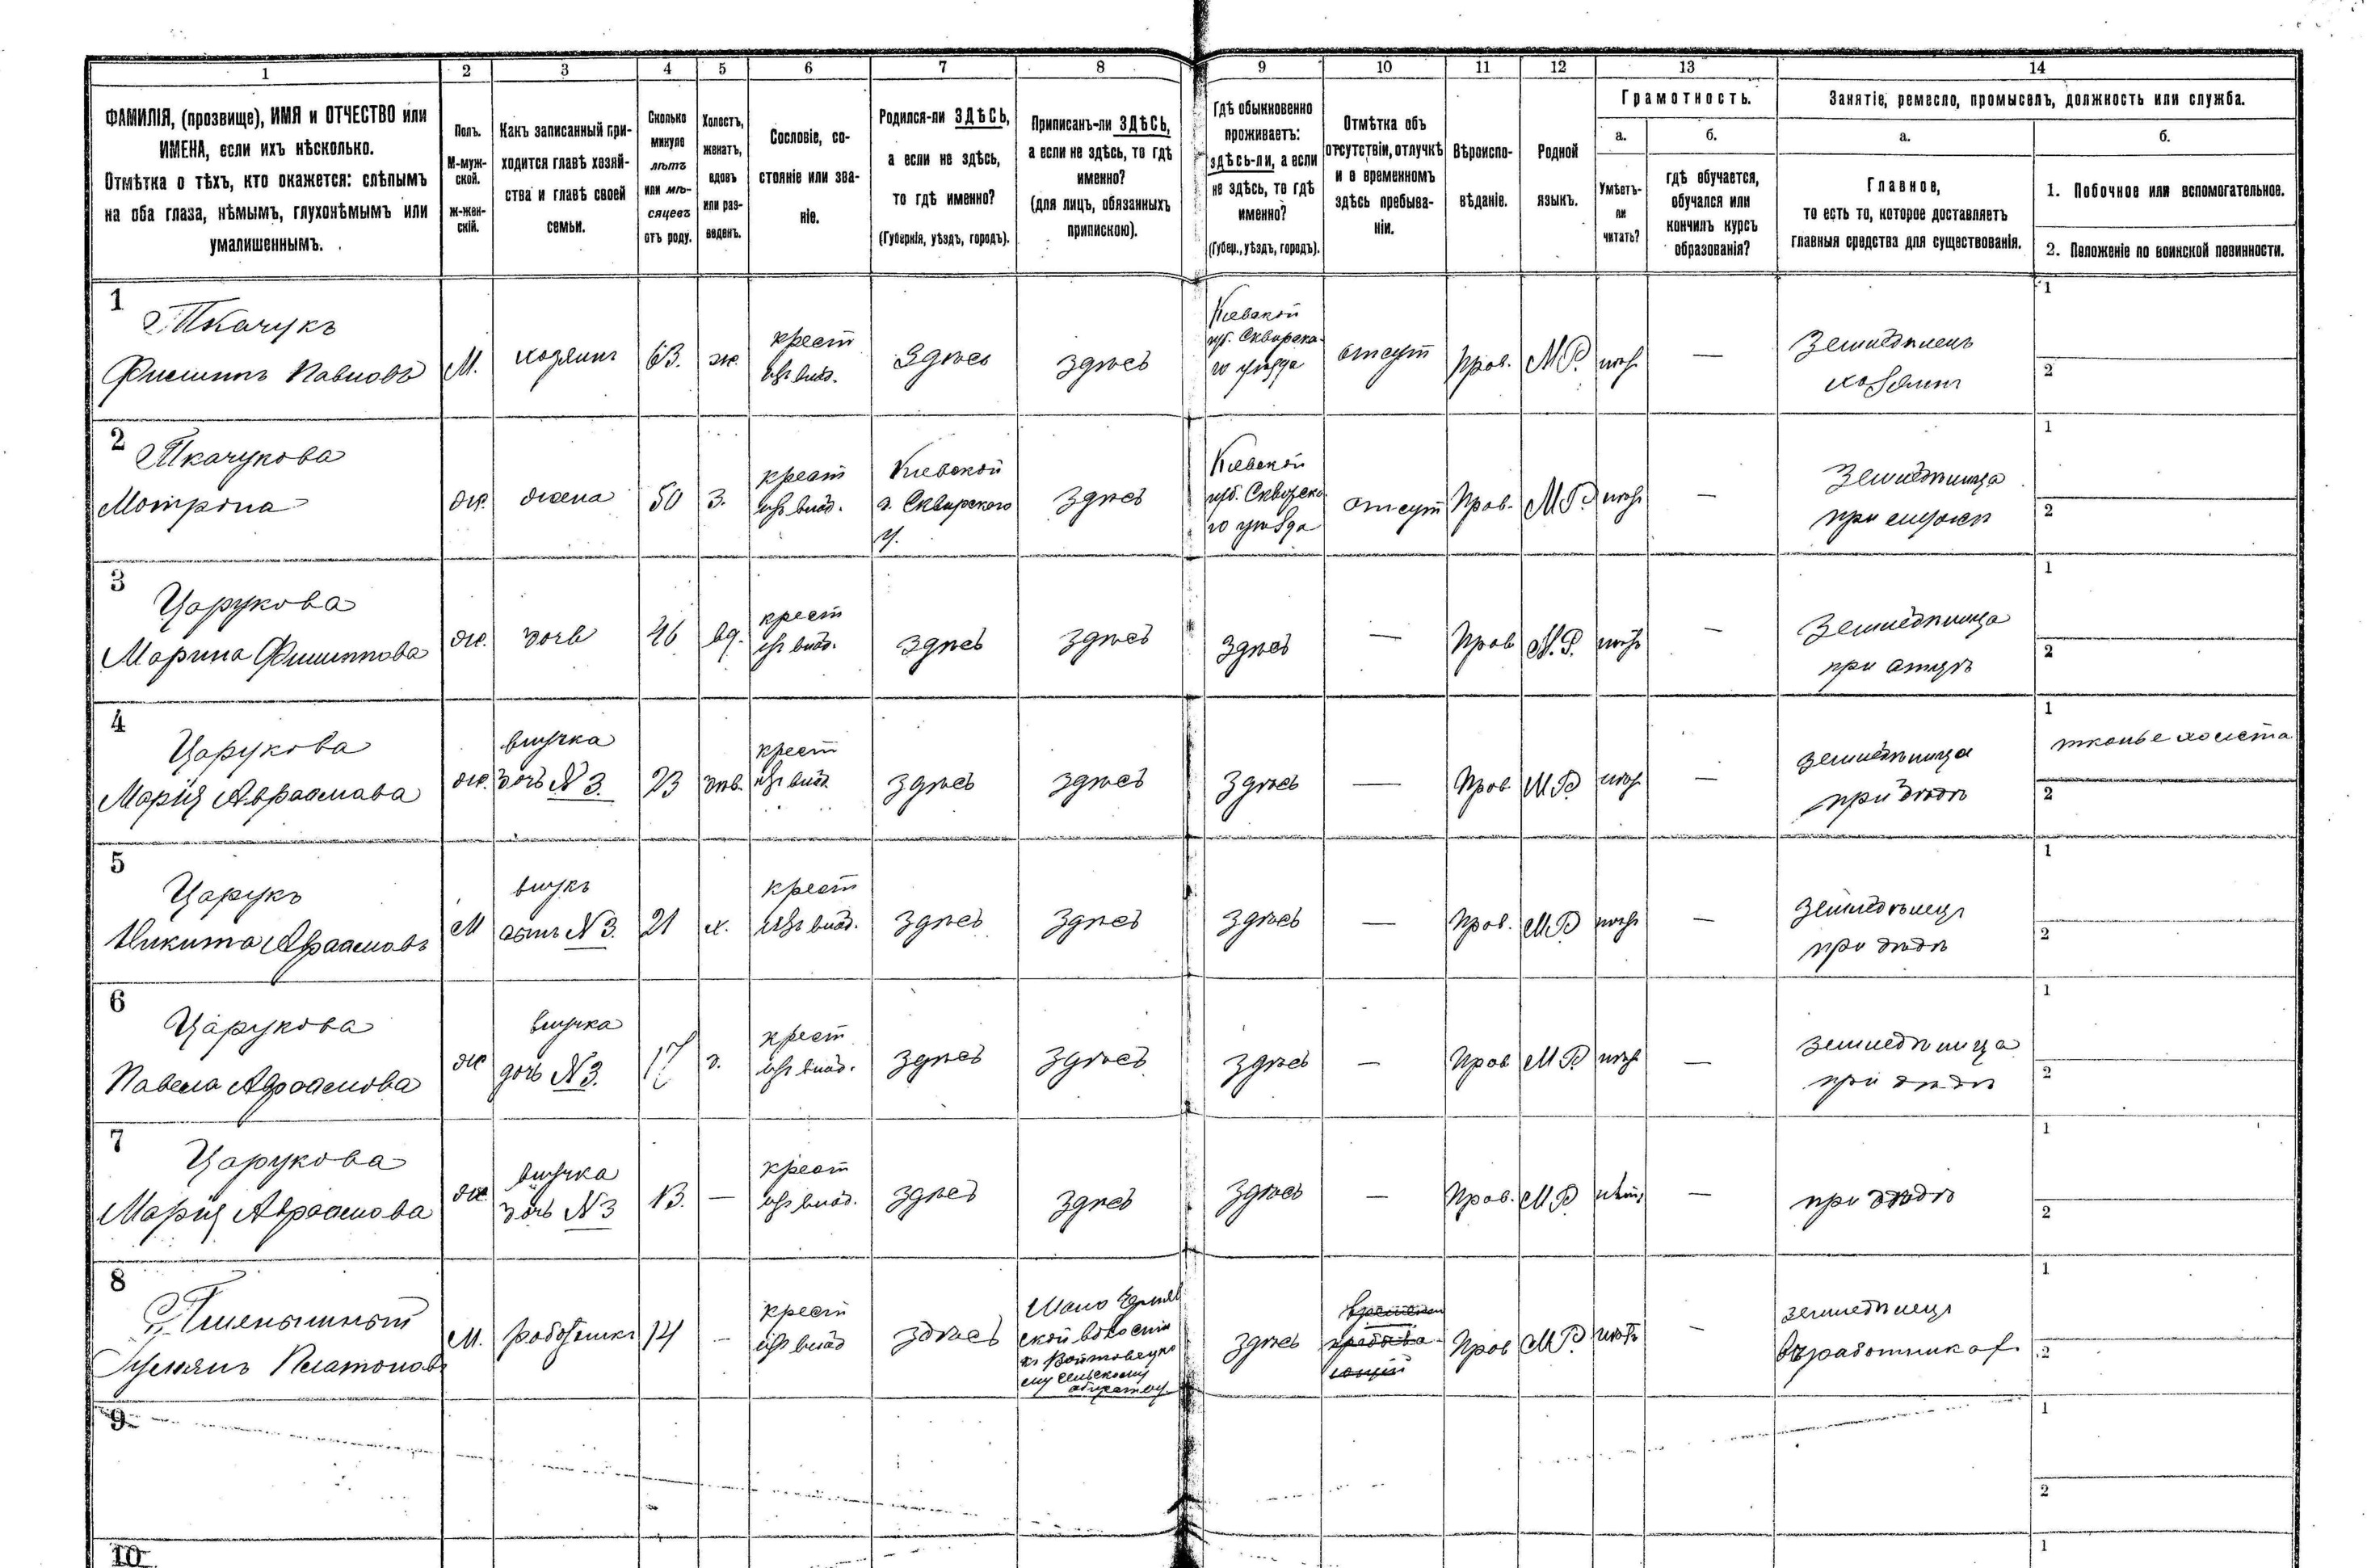 1 2 3 4 5 6 7 8 9 10 11 12 13 14
ФАМИЛІЯ, (прозвище), ИМЯ и ОТЧЕСТВО или
ИМЕНА, если ихъ нѣсколько.
Отмѣтка о тѣхъ, кто окажется: слѣпымъ
на оба глаза, нѣмымъ, глухонѣмымъ или
умалишеннымъ.
Полъ.
М-муж-
ской.
ж-жен-
скій.
Какъ записанный при-
ходится главѣ хозяй-
ства и главѣ своей
семьи.
Сколько
минуло
лѣтъ
или мѣ-
сяцевъ
отъ роду.
Холостъ,
женатъ,
вдовъ
или раз-
веденъ.
Сословіе, со-
стояніе или зва-
ніе.
Родился-ли ЗДѢСЬ,
а если не здѣсь,
то гдѣ именно?
(Губернія, уѣздъ, городъ).
Приписанъ-ли ЗДѢСЬ,
а если не здѣсь, то гдѣ
именно?
(для лицъ, обязанныхъ
припискою).
Гдѣ обыкновенно
проживаетъ:
здѣсь-ли, а если
не здѣсь, то гдѣ
именно?
(Губер., уѣздъ, городъ).
Отмѣтка объ
отсутствіи, отлучкѣ
и о временномъ
здѣсь пребыва-
ніи.
Вѣроиспо-
вѣданіе.
Родной
языкъ.
Грамотность.
а.
Умѣетъ-
ли
читать?
б.
гдѣ обучается,
обучался или
кончилъ курсъ
образованія?
Занятіе, ремесло, промыселъ, должность или служба.
а.
Главное,
то есть то, которое доставляетъ
главныя средства для существованія.
б.
1. Побочное или вспомогательное.
2. Положеніе по воинской повинности.
1
Ткачукъ
Филиппъ Павловъ
М.
хозяинъ
63.
ж.
крест
изъ влад.
Здѣсь
здѣсь
Кіевской
губ. Сквирска-
го уѣзда
отсут
Прав.
М.Р.
нѣтъ
—
Земледѣлецъ
хозяинъ
1
2
2
Ткачукова
Мотрона
ж.
жена
50
з.
крест
изъ влад.
Кіевской
г. Сквирского
у.
здѣсь
Кіевской
губ. Сквирска
го уѣзда
отсут
Прав.
М.Р.
нѣтъ
—
Земледѣлица
при мужѣ
1
2
3
Царукова
Марина Филиппова
ж.
дочь
46
вд.
крест
изъ влад.
здѣсь
здѣсь
здѣсь
—
Прав
М.Р.
нѣтъ
—
Земледѣлица
при отцѣ
1
2
4
Царукова
Марія Авраамова
ж.
внучка
дочь №3.
23
дѣв.
крест
изъ влад
здѣсь
здѣсь
здѣсь
—
Прав
М.Р.
нѣтъ
—
земледѣлица
при дѣдѣ
1
тканье холста
2
5
Царукъ
Никита Авраамовъ
М
внукъ
сынъ №3.
21
х.
крест
изъ влад.
здѣсь
здѣсь
здѣсь
—
Прав.
М.Р
нѣтъ
—
земледѣлецъ
при дѣдѣ
1
2
6
Царукова
Павела Авраамова
ж
внучка
дочь №3.
17
д.
крест
изъ влад.
здѣсь
здѣсь
здѣсь
—
Прав
М.Р.
нѣтъ
—
земледѣлица
при дѣдѣ
1
2
7
Царукова
Марія Авраамова
ж.
внучка
дочь №3
13.
—
крест
изъ влад.
здѣсь
здѣсь
здѣсь
—
Прав.
М.Р
нѣтъ
—
при дѣдѣ
1
2
8
Платоновъ
М.
работникъ
14
—
крест
изъ влад
здѣсь
ской волости
къ Войтовецко
му сельскому
обществу
здѣсь
времен
пребыва
ющій
Прав
М.Р.
нѣтъ
—
земледѣлецъ
въ работникахъ
1
2
9
1
2
10
1